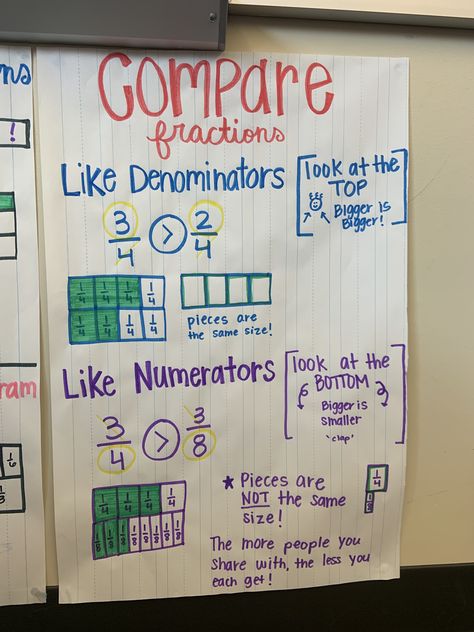 ns
!
Compare
fractions
Like Denominators
look at the
TOP
Bigger is
Bigger!
3/4 > 2/4
1/4 1/4 1/4 1/4
1/4 1/4 1/4 1/4
pieces are
the same size!
Like Numerators
look at the
BOTTOM
Bigger is
smaller
'clap'
ram
3/4 > 3/8
1/6
1/3
1/4 1/4 1/4 1/4
1/8 1/8 1/8 1/8 1/8 1/8 1/8 1/8
★ Pieces are
NOT the same
size!
1/4
1/8
The more people you
share with, the less you
each get!